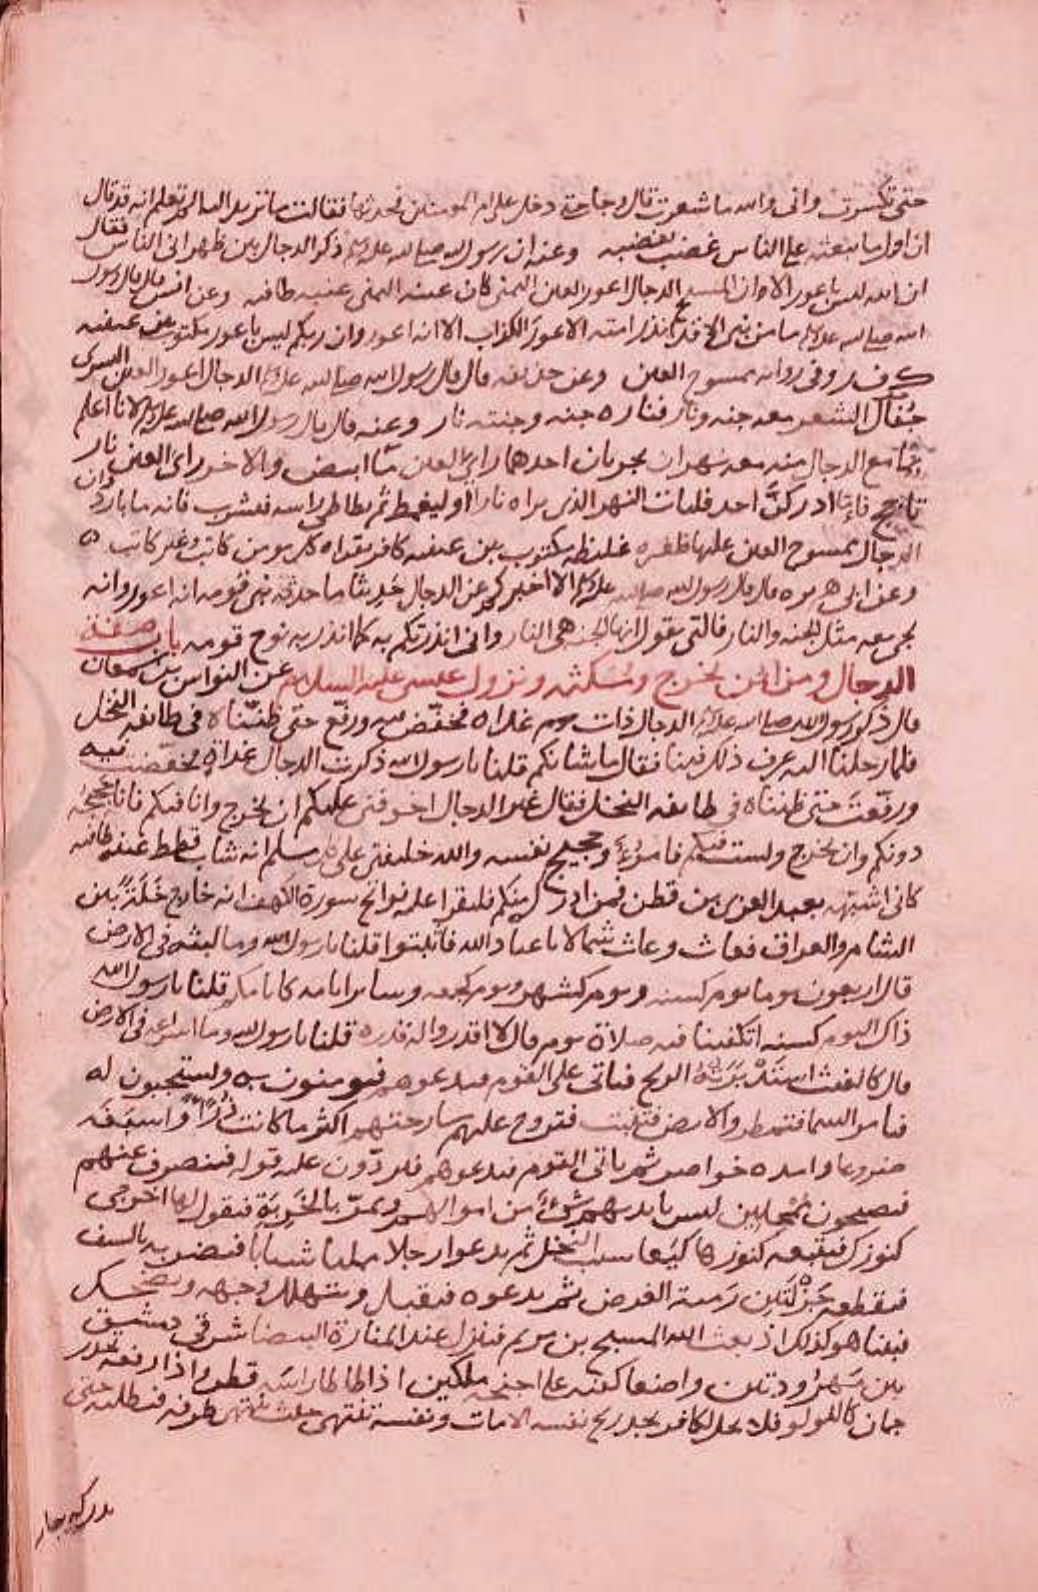 حتى تكسرت وانى والله ما شعرت قال وجا حتى دخل على ام المومنين فحدثها فقالت ما تريد اليه الم تعلم انه قد قال
ان اول ما يبعثه على الناس غضب يغضبه وعنه ان رسول الله صلى الله عليه ذكر الدجال بين ظهرانى الناس فقال
ان الله ليس باعور الا وان المسيح الدجال اعور العين اليمنى كان عينه اليمنى عنبه طافيه وعن انس قال قال رسول
الله صلى الله عليه ما من نبى الا قد انذر امته الاعور الكذاب الا انه اعور وان ربكم ليس باعور مكتوب بين عينيه
ك ف ر وفى روايه ممسوح العين وعن حذيفه قال قال رسول الله صلى الله عليه الدجال اعور العين اليسرى
جُفال الشعر معه جنه ونار فناره جنه وجنته نار وعنه قال قال رسول الله صلى الله عليه لانا اعلم
بما مع الدجال منه معه نهران يجريان احدهما راى العين مآ ابيض والاخر راى العين نار
تاجج فاما ادركنَّ احد فليات النهر الذى يراه نارا وليغمط ثم يطاطى راسه فيشرب فانه ما بارد وان
الدجال ممسوح العين عليها ظفره غليظه مكتوب بين عينيه كافر يقراه كل مومن كاتب وغير كاتب
وعن ابى هريره قال قال رسول الله صلى الله عليه الا اخبركم عن الدجال حديثا ما حدثه نبى قومه انه اعور وانه
يجى معه مثل الجنه والنار فالتى يقول انها الجنه هى النار وانى انذرتكم به كما انذر به نوح قومه باب صفة
الدجال ومن اين يخرج ومكثه ونزول عيسى عليه السلام عن النواس بن سمعان
قال ذكر رسول الله صلى الله عليه الدجال ذات يوم غداه فخفّض فيه ورفّع حتى ظنناه فى طايفه النخل
فلما رحلنا اليه عرف ذلك فينا فقال ما شانكم قلنا يا رسول الله ذكرت الدجال غداة فخفّضت فيه
ورفّعتَ حتى ظنناه فى طايفه النخل فقال غير الدجال اخوفنى عليكم ان يخرج وانا فيكم فانا حجيجه
دونكم وان يخرج ولست فيكم فامرؤٌ حجيج نفسه والله خليفتى على كل مسلم انه شاب قطط عينه طافيه
كانى اشبّهه بعبد العزى بن قطن فمن ادركه منكم فليقرا عليه فواتح سورة الكهف انه خارج خَلّة بين
الشام والعراق فعاث وعاث شمالا يا عباد الله فاثبتوا قلنا يا رسول الله وما لبثه فى الارض
قال اربعون يوما يوم كسنه ويوم كشهر ويوم كجمعه وساير ايامه كايامكم قلنا يا رسول الله
ذاك اليوم كسنه اتكفينا فيه صلاة يوم قال لا اقدروا له قدره قلنا يا رسول الله وما اسراعه فى الارض
قال كالغيث استدبرته الريح فياتى على القوم فيدعوهم فيومنون به ويستجيبون له
فيامر السما فتمطر والارض فتنبت فتروح عليهم سارحتهم اكثر ما كانت ذُرًا واسبغه
ضروعا وامده خواصر ثم ياتى القوم فيدعوهم فيردّون عليه قوله فينصرف عنهم
فيصبحون مُمْحِلين ليس بايديهم شئ من اموالهم ويمرّ بالخَرِبَة فيقول لها اخرجى
كنوزك فتتبعه كنوزها كيعاسيب النخل ثم يدعوا رجلا ممليا شبابا فيضربه بالسيف
فيقطعه جَزْلتين رَمية الغرض ثم يدعوه فيقبل ويتهلل وجهه ويضحك
فبينا هو كذلك اذ بعث الله المسيح بن مريم فينزل عند المنارة البيضا شرقى دمشق
بين مهرودتين واضعا كفيه على اجنحه ملكين اذا طاطا راسه قطر واذا رفعه تحدر
جمان كاللولو فلا يحل لكافر يجد ريح نفسه الا مات ونفسه تنتهى حيث ينتهى طرفه فيطلبه حتى
يدركه بباب